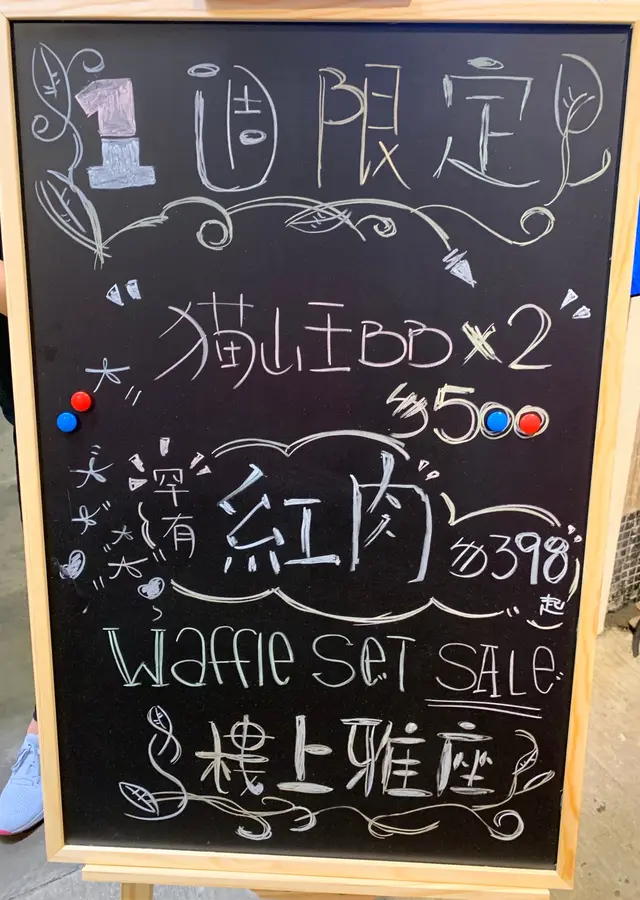 1週限定
猫山王BB×2
$500
罕有 紅肉 $398起
Waffle SeT SALe
樓上雅座